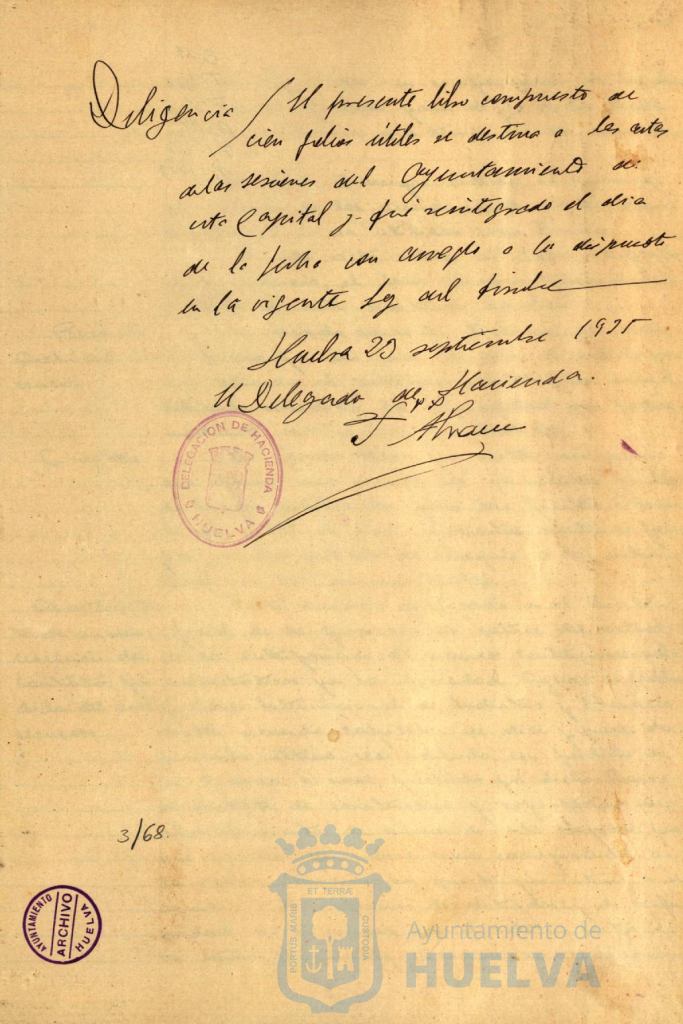 Diligencia / El presente libro compuesto de
cien folios útiles se destina a las actas
de las sesiones del Ayuntamiento de
esta Capital y fué reintegrado el dia
de la fecha con arreglo a lo dispuesto
en la vigente Ley del timbre
Huelva 23 septiembre 1935
El Delegado de Hacienda.
P.D.
DELEGACION DE HACIENDA
HUELVA
3/68.
AYUNTAMIENTO
ARCHIVO
HUELVA
ET TERRÆ
PORTUS MARIS
CUSTODIA
Ayuntamiento de
HUELVA